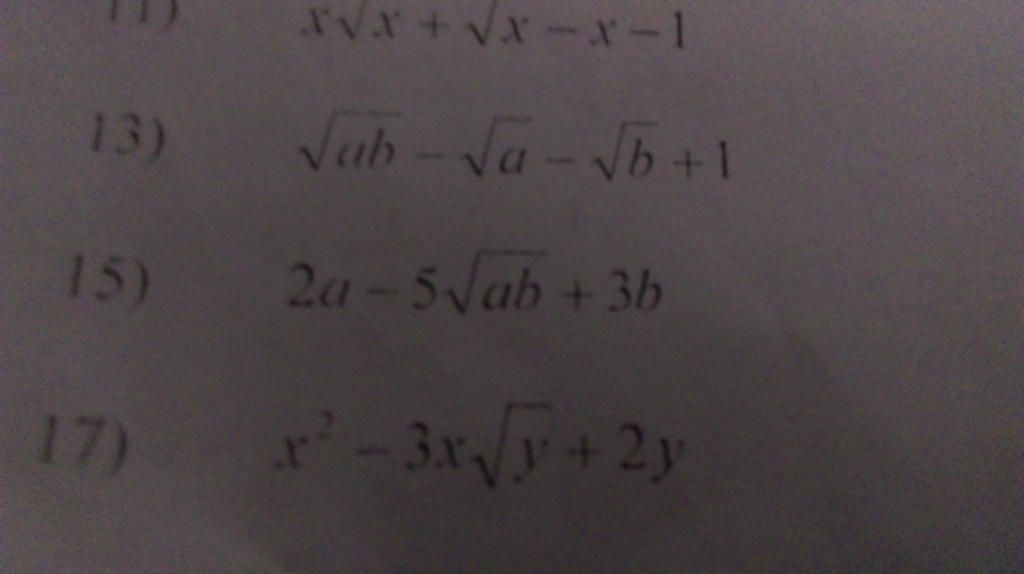 11) x√x + √x − x − 1
13) √ab − √a − √b + 1
15) 2a − 5√ab + 3b
17) x² − 3x√y + 2y